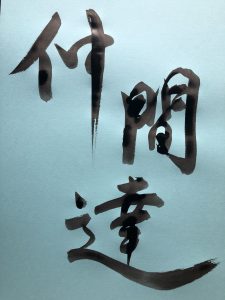 仲間達